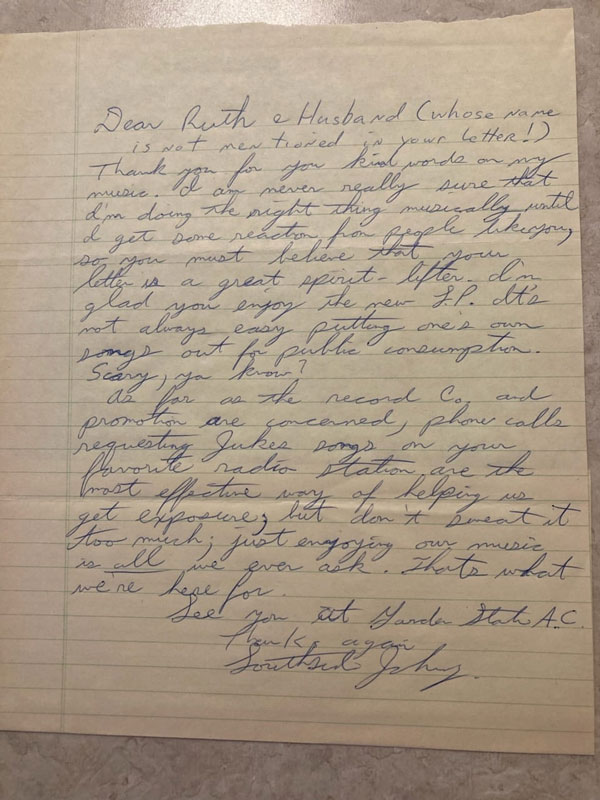 Dear Ruth & Husband (whose name
is not mentioned in your letter!)
Thank you for you kind words on my
music. I am never really sure that
I'm doing the right thing musically until
I get some reaction from people like you,
so you must believe that your
letter is a great spirit-lifter. I'm
glad you enjoy the new L.P. It's
not always easy putting one's own
songs out for public consumption.
Scary, ya know?
As far as the record Co. and
promotion are concerned, phone calls
requesting Jukes songs on your
favorite radio station are the
most effective way of helping us
get exposure; but don't sweat it
too much; just enjoying our music
is all we ever ask. That's what
we're here for.
See you at Garden State A.C.
Thanks again
Southside Johnny.